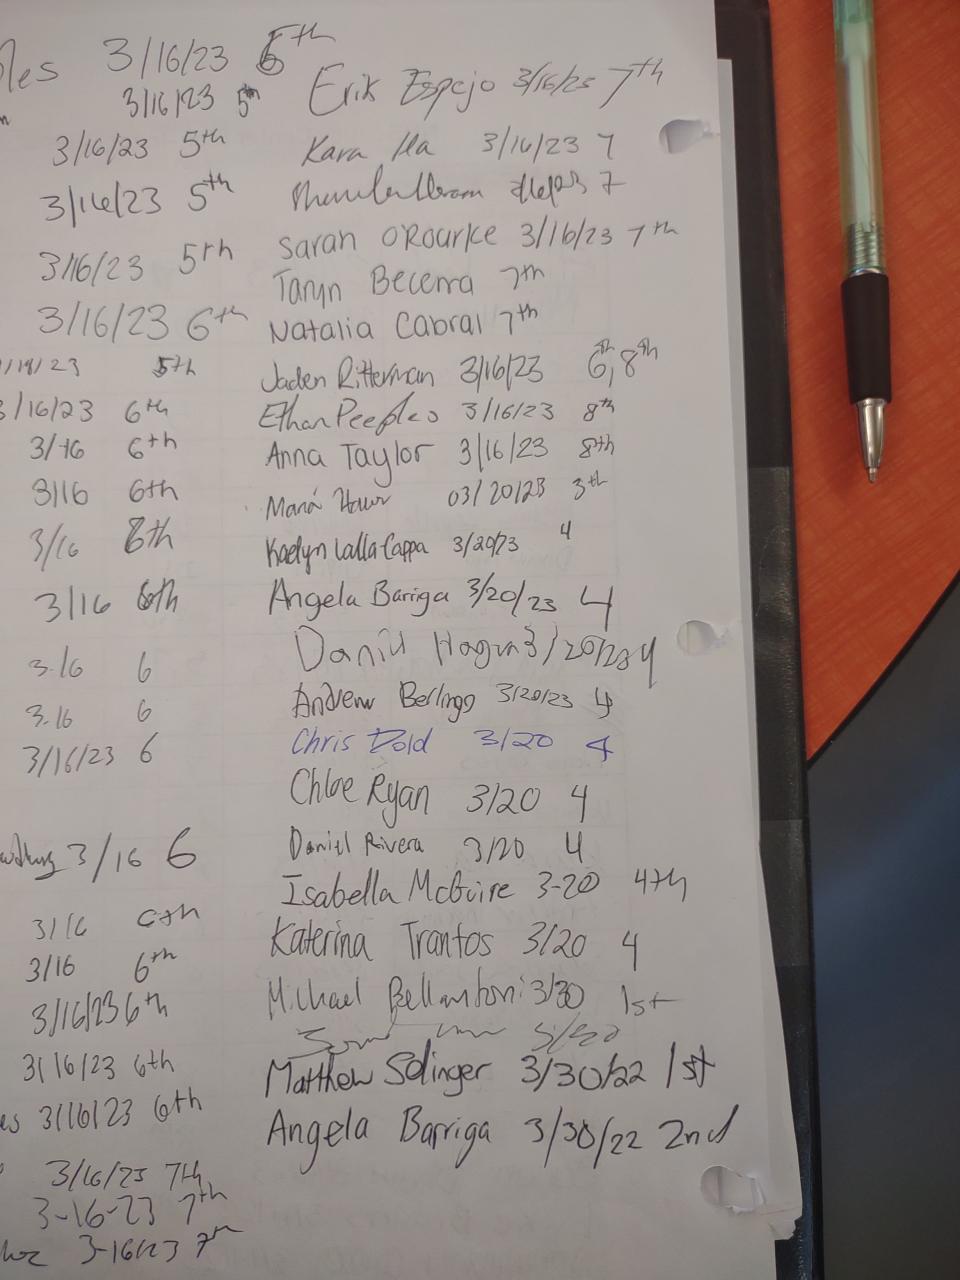 3/16/23 6th
3/16/23 5th
3/16/23 5th
3/16/23 5th
3/16/23 5th
3/16/23 6th
23 5th
3/16/23 6th
3/16 6th
3/16 6th
3/16 6th
3/16 6th
3-16 6
3-16 6
3/16/23 6
3/16 6
3/16 6th
3/16 6th
3/16/23 6th
3/16/23 6th
es 3/16/23 6th
3/16/23 7th
3-16-23 7th
3-16/23 7th
Erik Espejo 3/16/23 7th
Kara Ha 3/16/23 7
7
Sarah O'Rourke 3/16/23 7th
Taryn Becerra 7th
Natalia Cabral 7th
Jaden Ritterman 3/16/23 6th, 8th
Ethan Peeples 3/16/23 8th
Anna Taylor 3/16/23 8th
03/20/23 3th
Kaelyn LallaCappa 3/20/23 4
Angela Bariga 3/20/23 4
3/20/23 4
Andrew Berlingo 3/20/23 4
Chris Dold 3/20 4
Chloe Ryan 3/20 4
Daniel Rivera 3/20 4
Isabella McGuire 3-20 4th
Katerina Trantos 3/20 4
Michael Bellantoni 3/30 1st
Matthew Solinger 3/30/22 1st
Angela Barriga 3/30/22 2nd